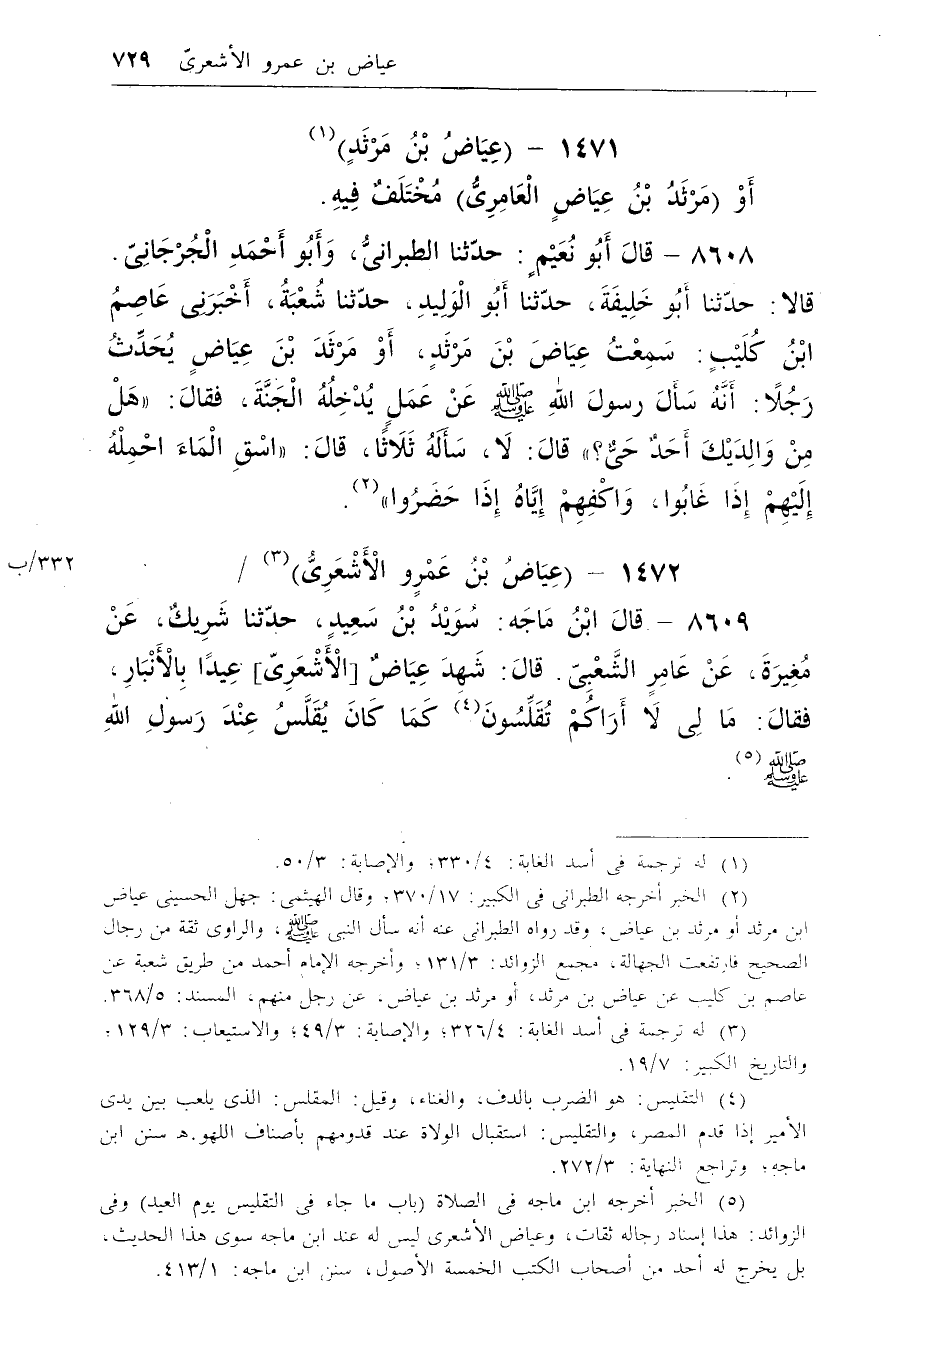 عياض بن عمرو الأشعرىّ ٧٢٩
١٤٧١ - (عِيَاضُ بْنُ مَرْثَدٍ)(١)
أَوْ (مَرْثَدُ بْنُ عِيَاضٍ الْعَامِرِىُّ) مُخْتَلَفٌ فِيهِ.
٨٦٠٨ - قالَ أَبُو نُعَيْمٍ: حدّثنا الطبرانىُّ، وَأَبُو أَحْمَدِ الْجُرْجَانِىّ.
قالا: حدّثنا أَبُو خَلِيفَةَ، حدّثنا أَبُو الْوَلِيدِ، حدّثنا شُعْبَةُ، أَخْبَرَنِى عَاصِمُ
ابْنُ كُلَيْبٍ: سَمِعْتُ عِيَاضَ بْنَ مَرْثَدٍ، أَوْ مَرْثَدَ بْنَ عِيَاضٍ يُحَدِّثُ
رَجُلًا: أَنَّهُ سَأَلَ رسولَ اللهِ ﷺ عَنْ عَمَلٍ يُدْخِلُهُ الْجَنَّةَ، فقالَ: «هَلْ
مِنْ وَالِدَيْكَ أَحَدٌ حَىٌّ؟» قالَ: لَا، سَأَلَهُ ثَلَاثًا، قالَ: «اسْقِ الْمَاءَ احْمِلْهُ
إِلَيْهِمْ إِذَا غَابُوا، وَاكْفِهِمْ إِيَّاهُ إِذَا حَضَرُوا»(٢).
١٤٧٢ - (عِيَاضُ بْنُ عَمْرٍو الْأَشْعَرِىُّ)(٣) / ٣٣٢/ب
٨٦٠٩ - قالَ ابْنُ مَاجَه: سُوَيْدُ بْنُ سَعِيدٍ، حدّثنا شَرِيكٌ، عَنْ
مُغِيرَةَ، عَنْ عَامِرٍ الشَّعْبِىّ. قالَ: شَهِدَ عِيَاضٌ [الْأَشْعَرِىّ] عِيدًا بِالْأَنْبَارِ،
فقالَ: مَا لِى لَا أَرَاكُمْ تُقَلِّسُونَ(٤) كَمَا كانَ يُقَلَّسُ عِنْدَ رَسولِ اللهِ
ﷺ(٥).
(١) له ترجمة فى أسد الغابة: ٣٣٠/٤؛ والإصابة: ٥٠/٣.
(٢) الخبر أخرجه الطبرانى فى الكبير: ٣٧٠/١٧؛ وقال الهيثمى: جهل الحسينى عياض
ابن مرثد أو مرثد بن عياض، وقد رواه الطبرانى عنه أنه سأل النبى ﷺ، والراوى ثقة من رجال
الصحيح فارتفعت الجهالة، مجمع الزوائد: ١٣١/٣؛ وأخرجه الإمام أحمد من طريق شعبة عن
عاصم بن كليب عن عياض بن مرثد، أو مرثد بن عياض، عن رجل منهم، المسند: ٣٦٨/٥.
(٣) له ترجمة فى أسد الغابة: ٣٢٦/٤؛ والإصابة: ٤٩/٣؛ والاستيعاب: ١٢٩/٣؛
والتاريخ الكبير: ١٩/٧.
(٤) التقليس: هو الضرب بالدف، والغناء، وقيل: المقلس: الذى يلعب بين يدى
الأمير إذا قدم المصر، والتقليس: استقبال الولاة عند قدومهم بأصناف اللهو.هـ سنن ابن
ماجه؛ وتراجع النهاية: ٢٧٢/٣.
(٥) الخبر أخرجه ابن ماجه فى الصلاة (باب ما جاء فى التقليس يوم العيد) وفى
الزوائد: هذا إسناد رجاله ثقات، وعياض الأشعرى ليس له عند ابن ماجه سوى هذا الحديث،
بل يخرج له أحد من أصحاب الكتب الخمسة الأصول، سنن ابن ماجه: ٤١٣/١.